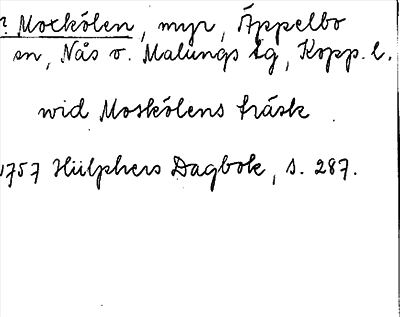 ? Mockölen, myr, Äppelbo
sn, Nås o. Malungs tg, Kopp. l.
wid Moskölens träsk
1757 Hülphers Dagbok, s. 287.